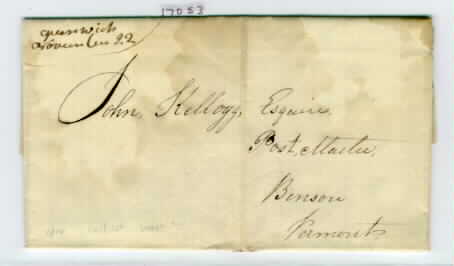 17053
greenwich
November 22
John, Kellogg, Esquire,
Post, Master,
Benson
Vermont